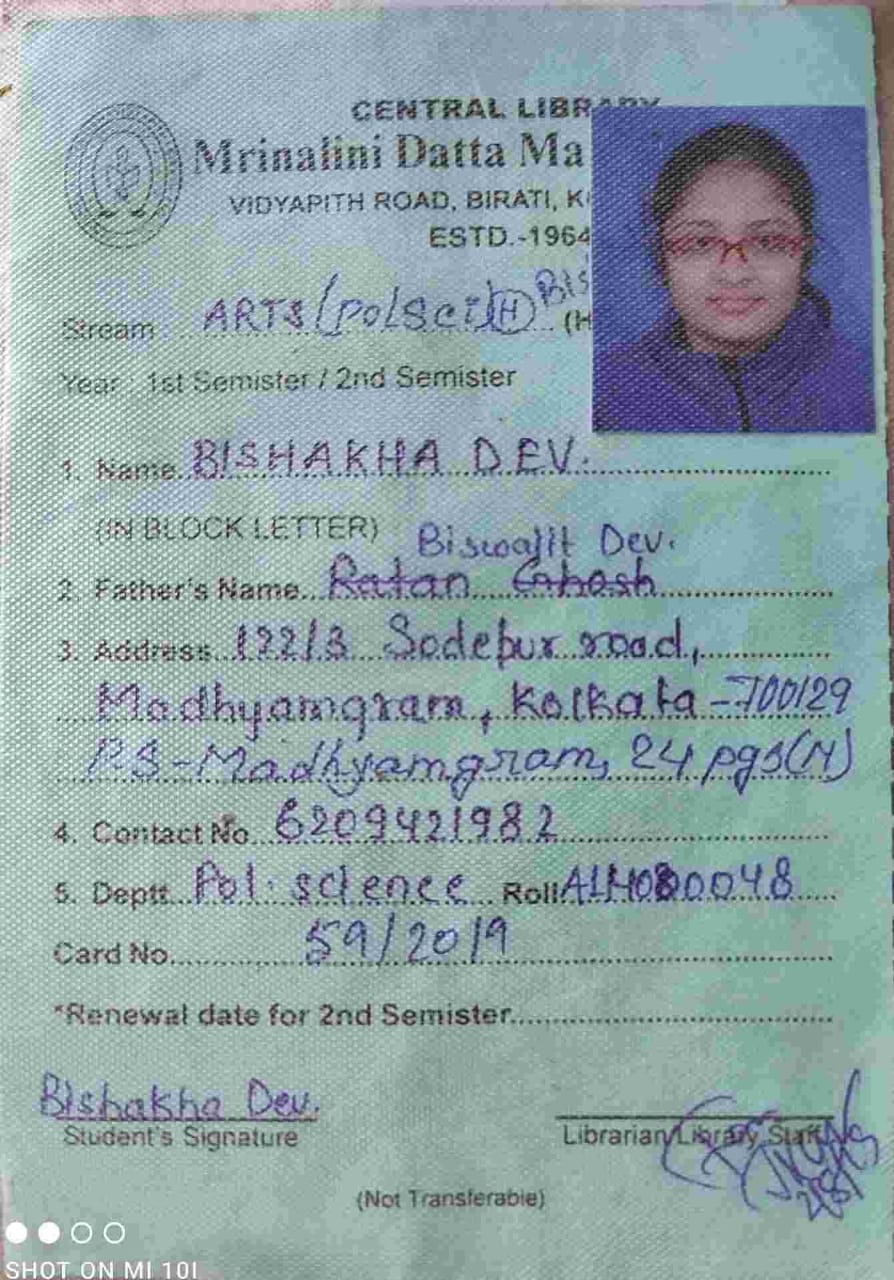 CENTRAL LIBRARY
Mrinalini Datta Ma
VIDYAPITH ROAD, BIRATI, K
ESTD.-1964
Stream ARTS (Pol Sci) (H) Bis (H
Year : 1st Semister / 2nd Semister
1. Name BISHAKHA DEV.
(IN BLOCK LETTER) Biswajit Dev.
2. Father's Name Ratan Ghosh
3. Address 122/3 Sodepur road,
Madhyamgram, Kolkata -700129
P.S-Madhyamgram, 24 pgs(N)
4. Contact No. 6209421982
5. Deptt. Pol. science Roll
Card No. 59/2019
*Renewal date for 2nd Semister
Bishakha Dev.
Student's Signature Librarian/Library Staff
(Not Transferable)
SHOT ON MI 10I